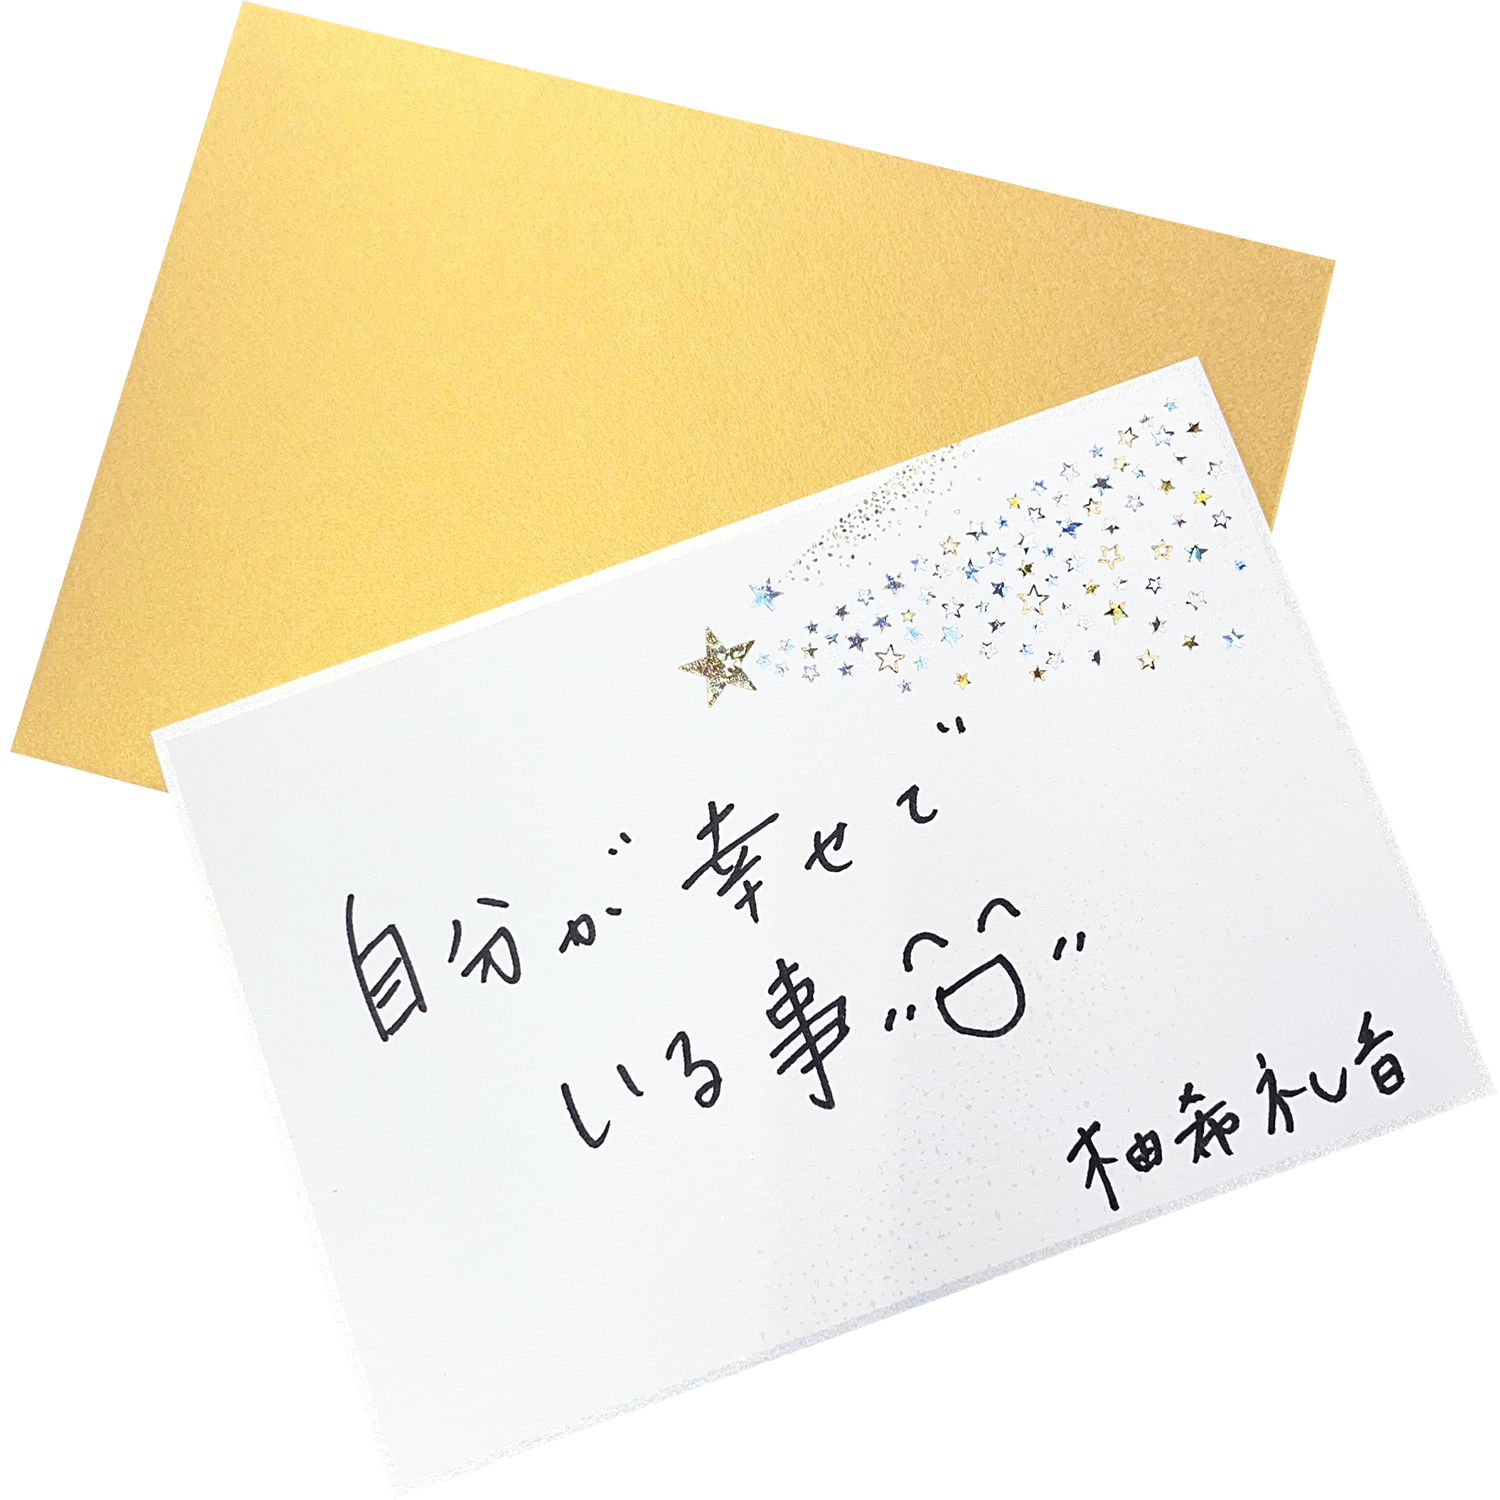 自分が幸せで
いる事
柚希礼音